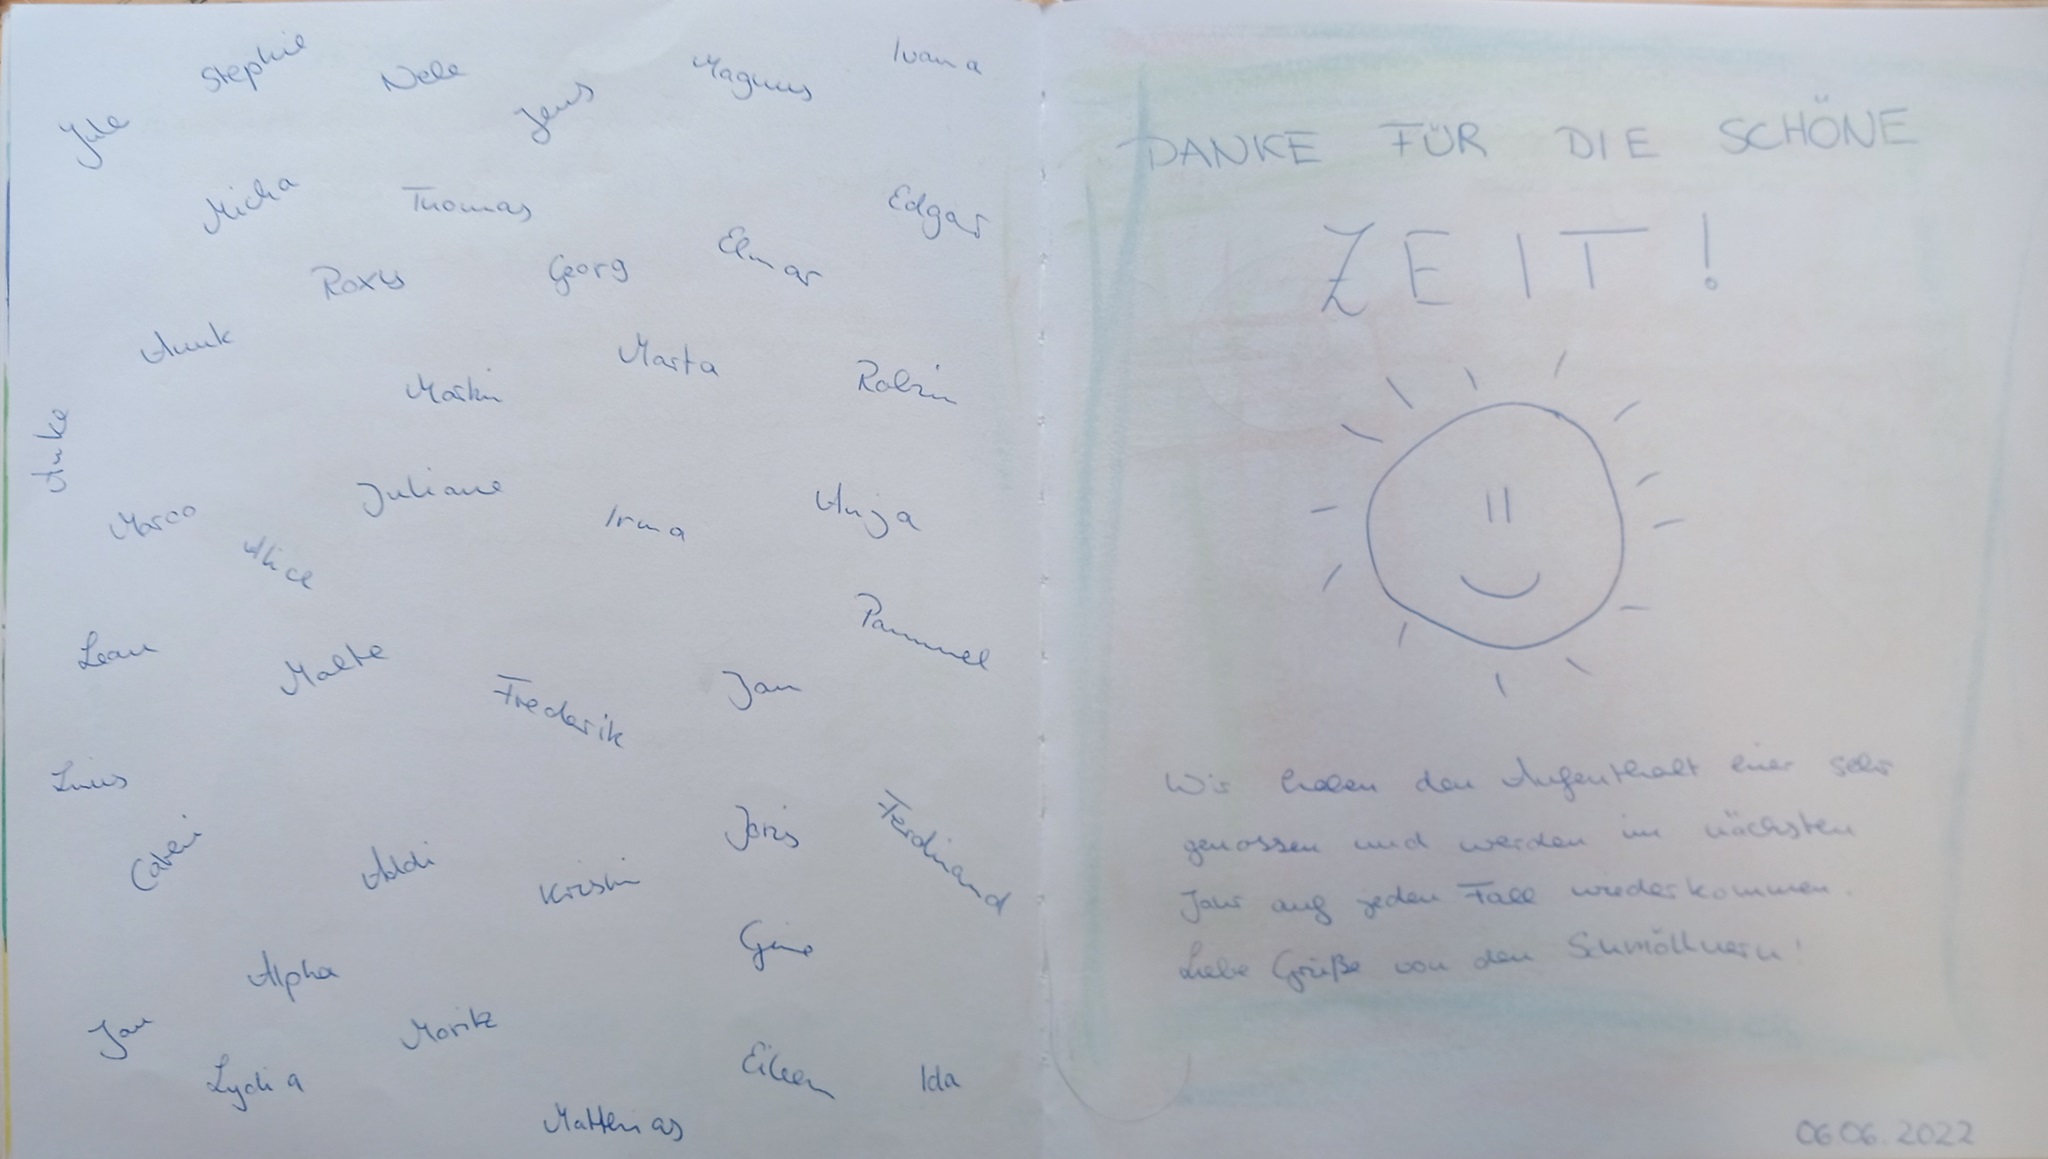 Stephie
Nele
Jens
Magnus
Ivana
Jule
Micha
Thomas
Edgar
Roxy
Georg
Elmar
Annk
Martin
Marta
Robin
Anke
Marco
Alice
Juliane
Irma
Anja
Leau
Malte
Frederik
Jan
Pammel
Linus
Catrin
Addi
Kristin
Joris
Ferdinand
Alpha
Gino
Jan
Moritz
Lydia
Eileen
Ida
Matthias
DANKE FÜR DIE SCHÖNE
ZEIT!
Wir haben den Aufenthalt hier sehr
genossen und werden im nächsten
Jahr auf jeden Fall wiederkommen.
Liebe Grüße von den Schmöllnern!
06.06.2022